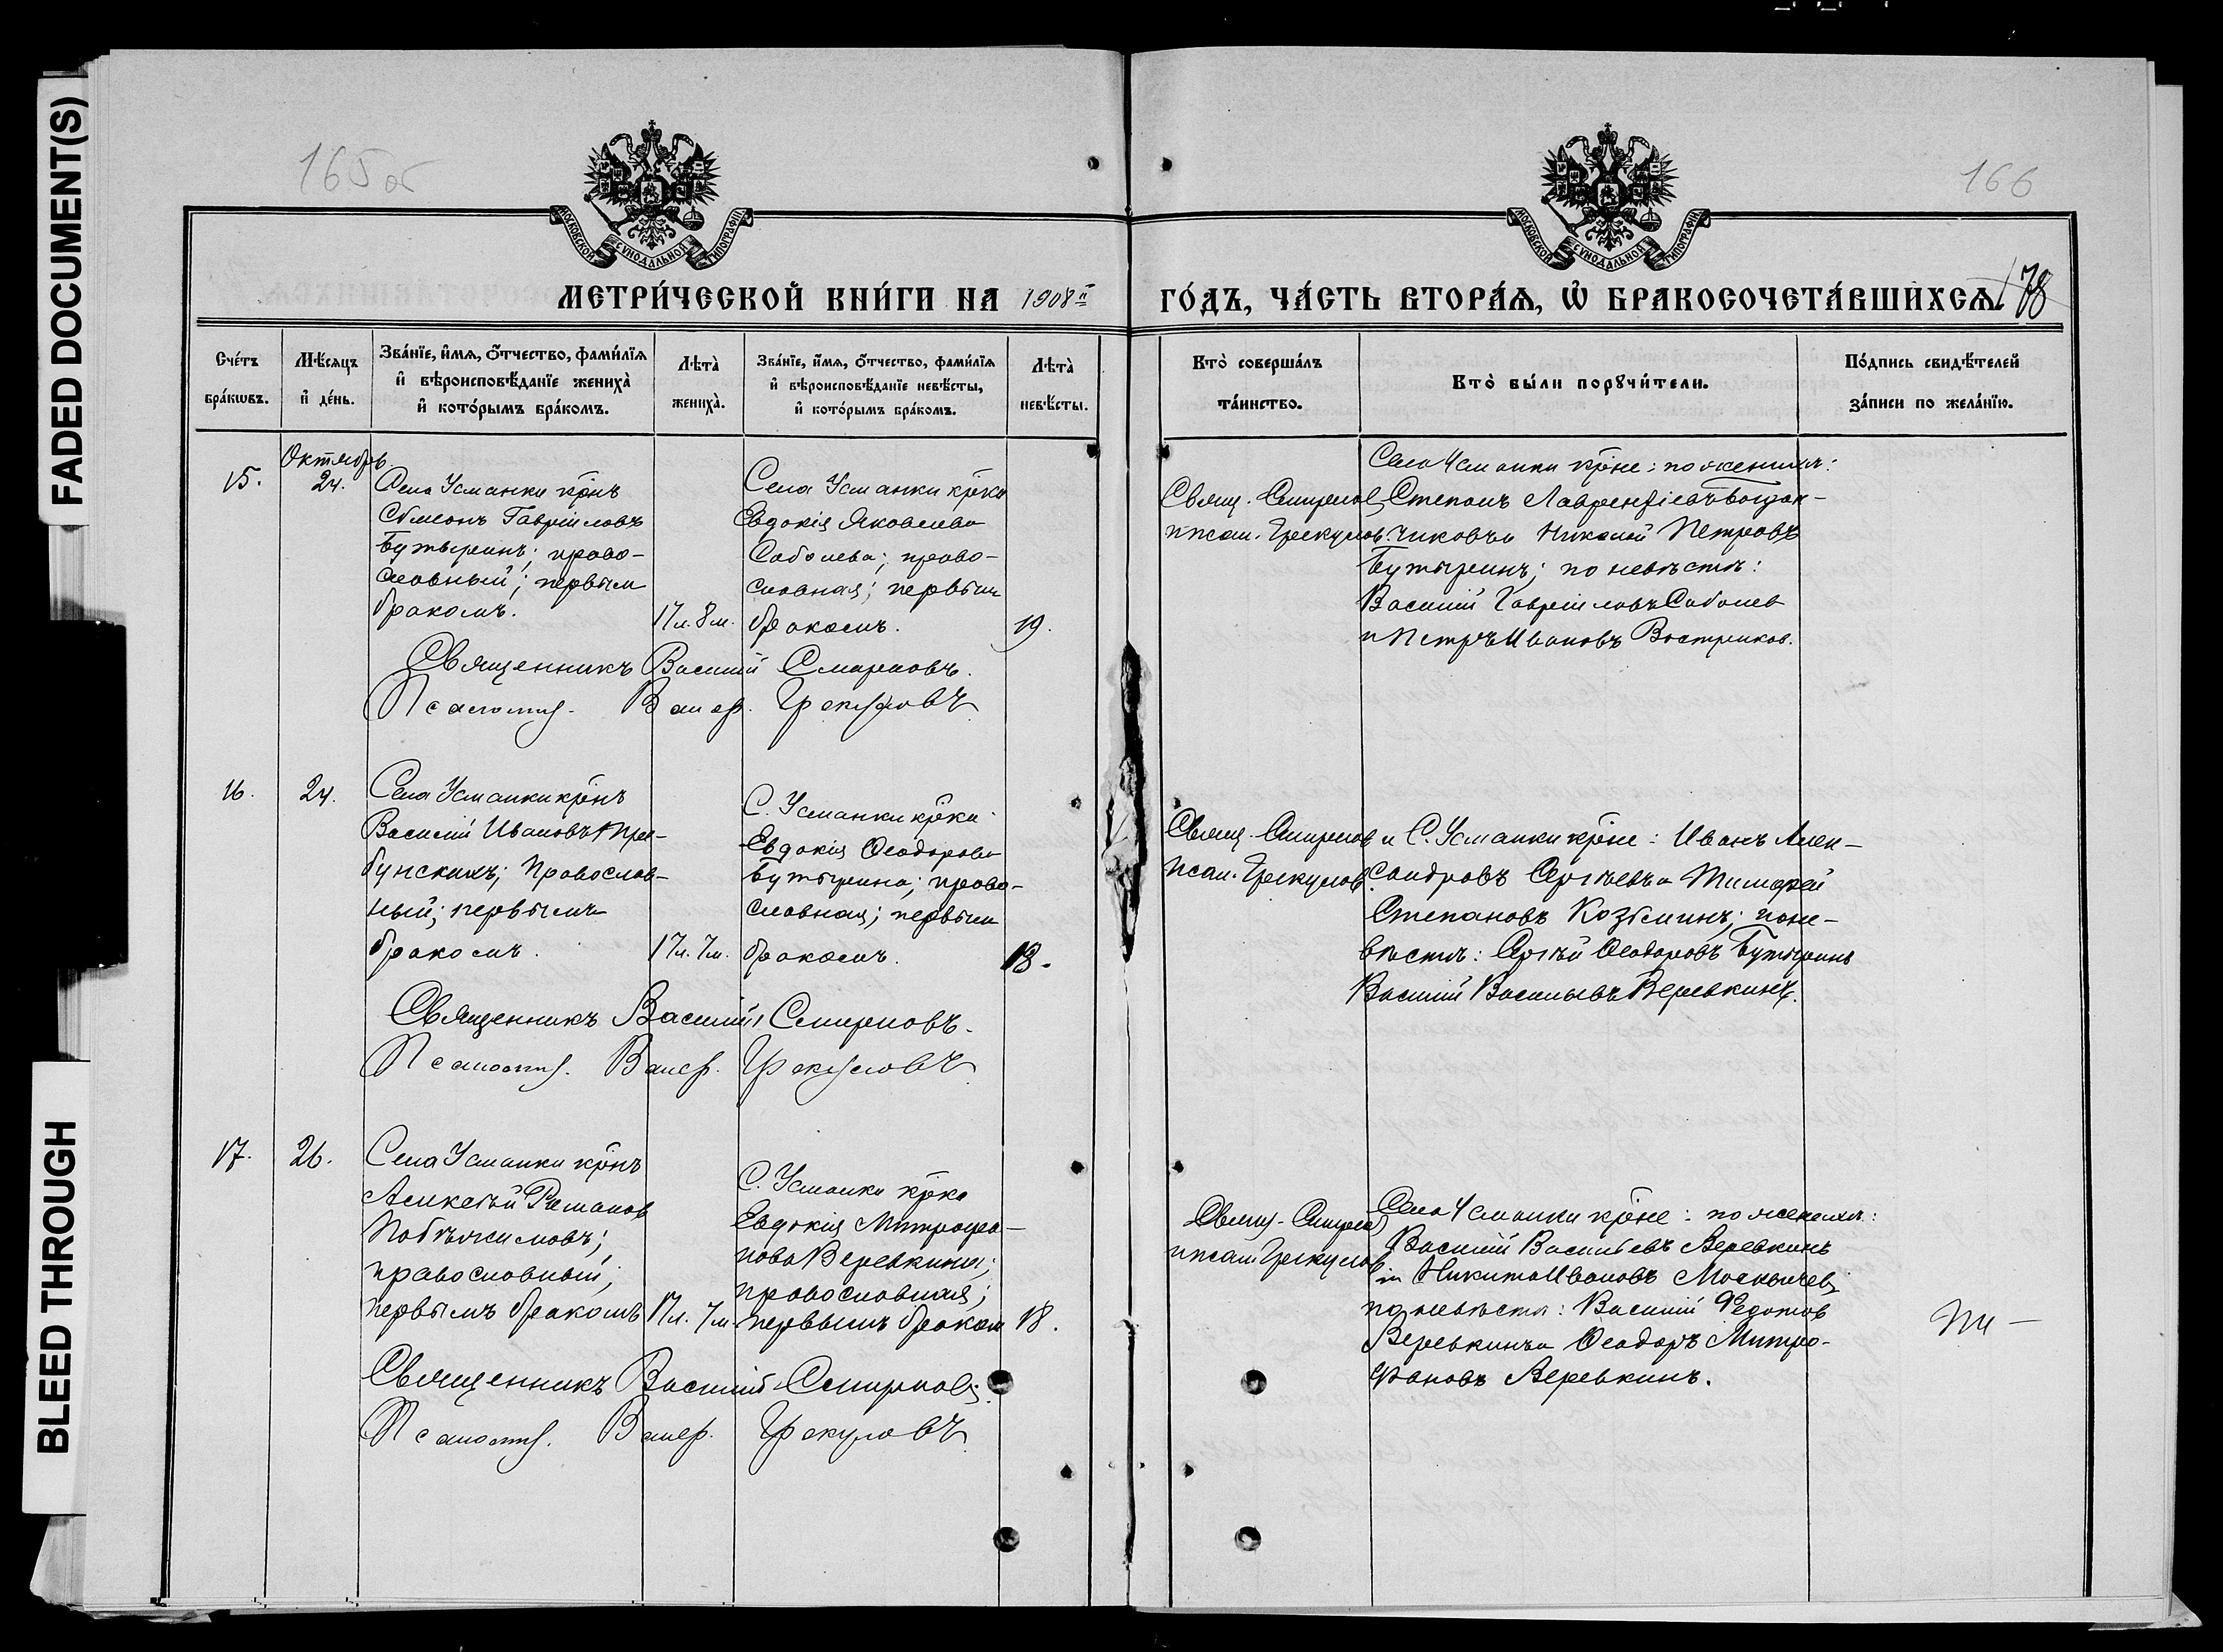 FADED DOCUMENT(S)
BLEED THROUGH
165 об
166
МОСКОВСКОЙ СУНОДАЛЬНОЙ ТИПОГРАФІИ
МОСКОВСКОЙ СУНОДАЛЬНОЙ ТИПОГРАФІИ
МЕТРИ́ЧЕСКОЙ КНИ́ГИ НА 1908й
ГО́ДЪ, ЧА́СТЬ ВТОРА́Я, Ѡ БРАКОСОЧЕТА́ВШИХСЯ.
178
Сче́тъ бра́кѡвъ.
Мѣ́сяцъ и де́нь.
Зва́нїе, и́мѧ, ѻ́тчество, фами́лїѧ и вѣроисповѣ́данїе жениха̀ и кото́рымъ бра́комъ.
Лѣта̀ жениха̀.
Зва́нїе, и́мѧ, ѻ́тчество, фами́лїѧ и вѣроисповѣ́данїе невѣ́сты, и кото́рымъ бра́комъ.
Лѣта̀ невѣ́сты.
Кто̀ соверша́лъ та́инство.
Кто̀ бы́ли порꙋчи́тели.
По́дпись свидѣ́телей за́писи по жела́нїю.
15.
Октябрь
24.
Села Усманки крнъ
Сѵмеонъ Гавріиловъ
Бутыринъ; право-
славный; первым
бракомъ.
17 л. 8 м.
Села Усманки крка
Евдокія Яковлева
Соболева; право-
славная; первым
бракомъ.
19.
Свящ. Смирнов
псал. Грекулов.
Села Усманки крне: по женихѣ:
Степанъ Лаврентіевъ
чиковъ и Николай Петровъ
Бутыринъ; по невѣстѣ:
Василій Гавріиловъ Соболев
и Петръ Ивановъ Востриков.
Священникъ Василій Смирновъ.
Псаломщ. Валер. Грекуловъ
16.
24.
Села Усманки крнъ
Василій Ивановъ
бунскихъ; православ-
ный; первымъ
бракомъ.
17 л. 7 м.
С. Усманки крка
Евдокія Ѳеодорова
Бутырина; право-
славная; первым
бракомъ.
18.
Свящ. Смирнов и
псал. Грекулов.
С. Усманки крне: Иванъ Алек-
сандровъ Сергѣевъ и Тимофей
Степановъ Козьминъ; по не-
вѣстѣ: Сергѣй Ѳеодоровъ Бутыринъ
Василій Васильевъ Веревкинъ.
Священникъ Василій Смирновъ.
Псаломщ. Валер. Грекуловъ
17.
26.
Села Усманки крнъ
Алексѣй Романов
Побѣжимовъ;
православный;
первымъ бракомъ
17 л. 7 м.
С. Усманки крка
Евдокія Митрофа-
нова Веревкина;
православная;
первымъ браком
18.
Свящ. Смирнов
псал. Грекулов
Села Усманки крне: по женихѣ:
Василій Васильевъ Веревкинъ
и Никита Ивановъ Москвичев;
по невѣстѣ: Василій Федотов
Веревкинъ и Ѳеодоръ Митро-
фановъ Веревкинъ.
Священникъ Василій Смирновъ.
Псаломщ. Валер. Грекуловъ